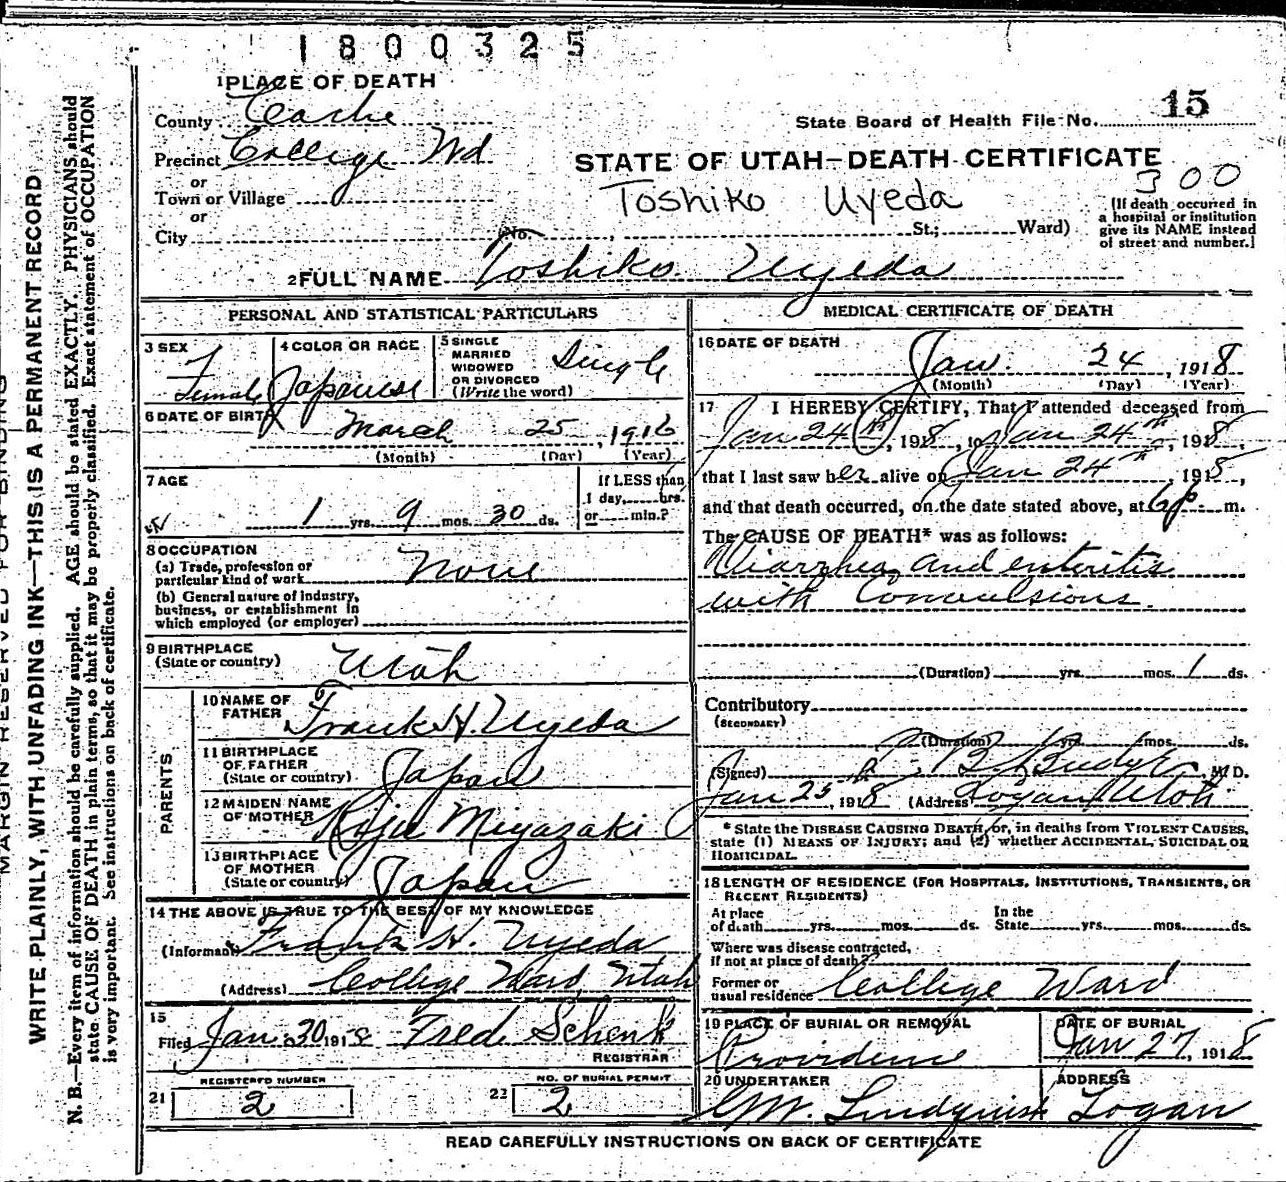 1800325
1 PLACE OF DEATH
County Cache
State Board of Health File No. 15
Precinct College Wd
STATE OF UTAH—DEATH CERTIFICATE
or
Town or Village
Toshiko Uyeda
300
or
City (No. , St.; Ward)
(If death occurred in
a hospital or institution
give its NAME instead
of street and number.)
2 FULL NAME Toshiko Uyeda
PERSONAL AND STATISTICAL PARTICULARS
3 SEX
Female
4 COLOR OR RACE
Japanese
5 SINGLE
MARRIED
WIDOWED
OR DIVORCED
(Write the word)
Single
6 DATE OF BIRTH
March 25, 1916
(Month) (Day) (Year)
7 AGE
1 yrs. 9 mos. 30 ds.
If LESS than
1 day, hrs.
or min.?
8 OCCUPATION
(a) Trade, profession or
particular kind of work None
(b) General nature of industry,
business, or establishment in
which employed (or employer)
9 BIRTHPLACE
(State or country) Utah
PARENTS
10 NAME OF
FATHER Frank H. Uyeda
11 BIRTHPLACE
OF FATHER
(State or country) Japan
12 MAIDEN NAME
OF MOTHER Miyazaki
13 BIRTHPLACE
OF MOTHER
(State or country) Japan
14 THE ABOVE IS TRUE TO THE BEST OF MY KNOWLEDGE
(Informant) Frank H. Uyeda
(Address) College Ward, Utah
15
Filed Jan. 30 1918 Fred Schenk
REGISTRAR
REGISTERED NUMBER
21 2
NO. OF BURIAL PERMIT
22 2
MEDICAL CERTIFICATE OF DEATH
16 DATE OF DEATH
Jan. 24, 1918
(Month) (Day) (Year)
17 I HEREBY CERTIFY, That I attended deceased from
Jan 24th, 1918, to Jan 24th, 1918,
that I last saw her alive on Jan 24th, 1918,
and that death occurred, on the date stated above, at 6 p. m.
The CAUSE OF DEATH* was as follows:
Diarrhea and enteritis
with Convulsions.
(Duration) yrs. mos. 1 ds.
Contributory
(SECONDARY)
(Duration) yrs. mos. ds.
(Signed) , M. D.
Jan 25, 1918 (Address) Logan Utah
* State the DISEASE CAUSING DEATH, or, in deaths from VIOLENT CAUSES,
state (1) MEANS OF INJURY; and (2) whether ACCIDENTAL, SUICIDAL OR
HOMICIDAL.
18 LENGTH OF RESIDENCE (FOR HOSPITALS, INSTITUTIONS, TRANSIENTS, OR
RECENT RESIDENTS)
At place
of death yrs. mos. ds.
In the
State yrs. mos. ds.
Where was disease contracted,
if not at place of death?
Former or
usual residence College Ward
19 PLACE OF BURIAL OR REMOVAL
Providence
DATE OF BURIAL
Jan 27, 1918
20 UNDERTAKER
Lindquist
ADDRESS
Logan
READ CAREFULLY INSTRUCTIONS ON BACK OF CERTIFICATE
MARGIN RESERVED FOR BINDING
WRITE PLAINLY, WITH UNFADING INK—THIS IS A PERMANENT RECORD
N. B.—Every item of information should be carefully supplied. AGE should be stated EXACTLY. PHYSICIANS should
state CAUSE OF DEATH in plain terms, so that it may be properly classified. Exact statement of OCCUPATION
is very important. See instructions on back of certificate.